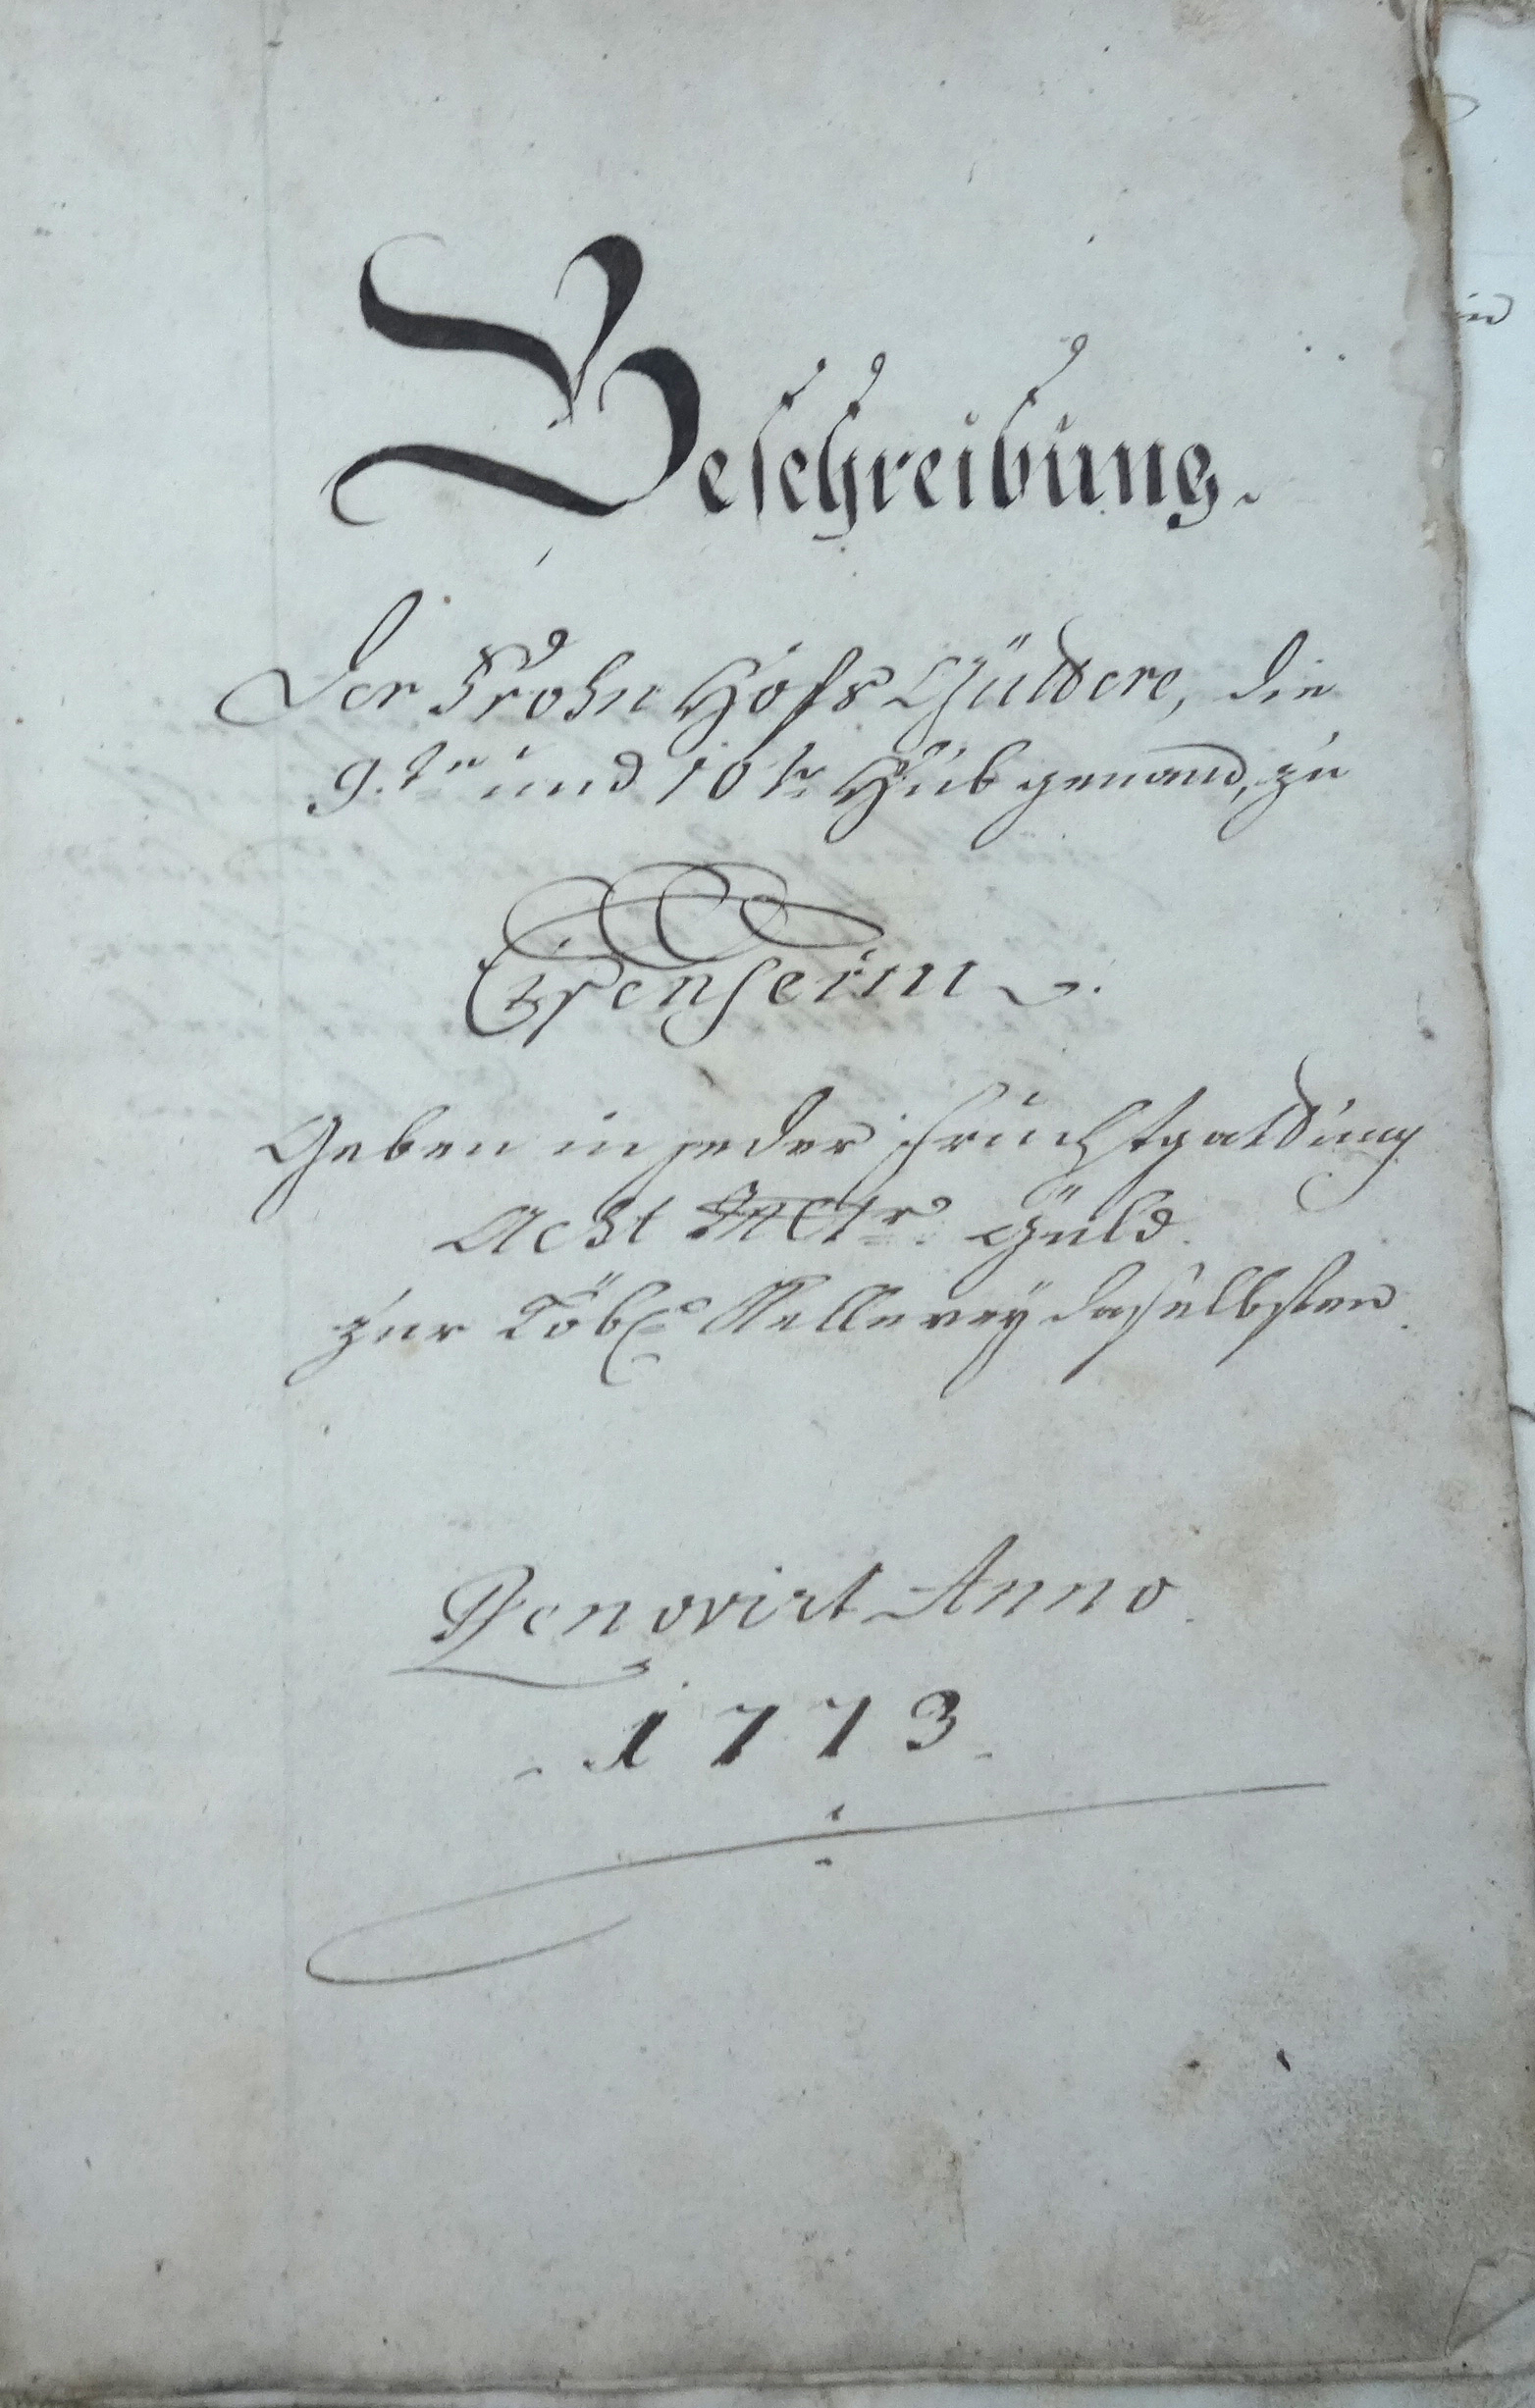 Beschreibung.
Der Frohn Hofs Güldere, die
9.te und 10te Hub genand, zu
Essenheim.
Geben in jeder Fruchtgaldung
Acht Mltr. Güld.
zur Löbl. Kellerey daselbsten.
Renovirt Anno
1773.